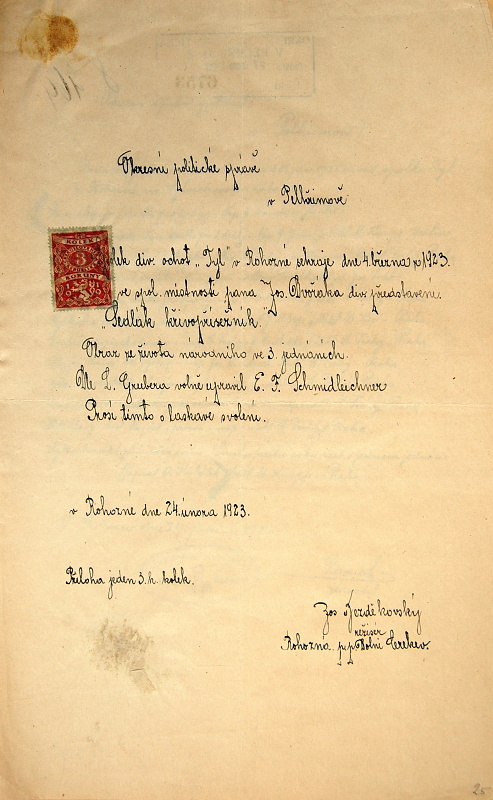 Okresní politické správě
v Pelhřimově
KOLEK
3
KORUNY
Spolek div. ochot. „Tyl" v Rohozné sehraje dne 4. března r. 1923.
ve spol. místnosti pana Jos. Dvořáka div. představení.
„Sedlák křivopřísežník."
Obraz ze života národního ve 3. jednáních.
Dle L. Grubera volně upravil E. F. Schmidleichner
Prosí tímto o laskavé svolení.
v Rohozné dne 24. února 1923.
Příloha jeden 3. k. kolek.
Jos
režisér
Rohozná p. p. Dolní Cerekev.
25